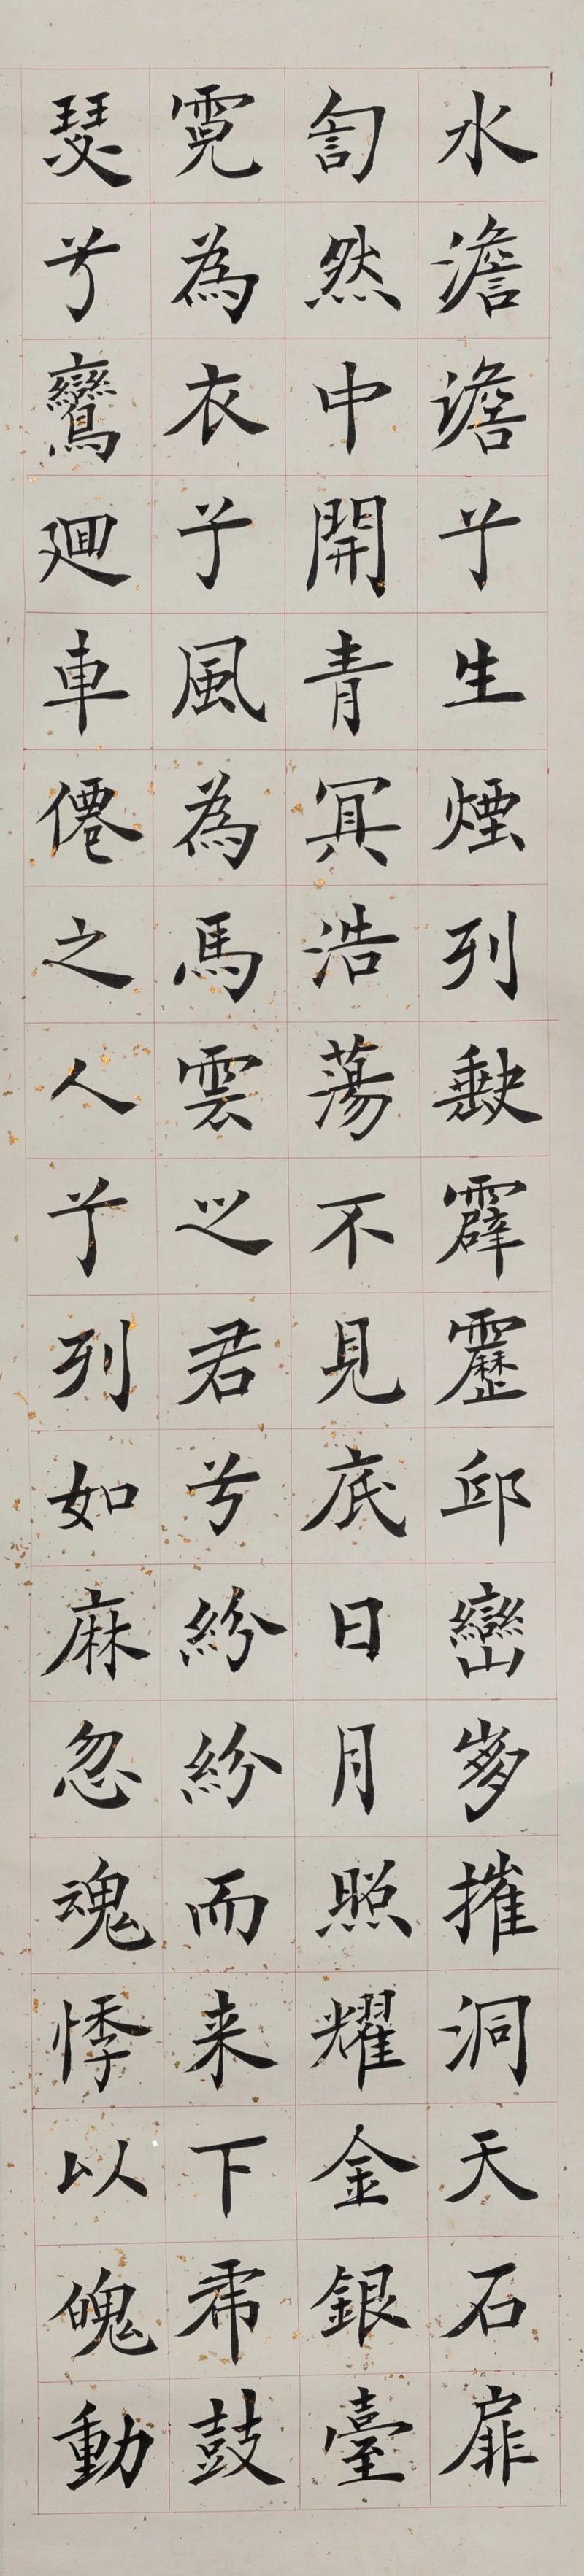 水澹澹兮生煙列缺霹靂邱巒崩摧洞天石扉
訇然中開青冥浩蕩不見底日月照耀金銀臺
霓為衣兮風為馬雲之君兮紛紛而来下虎鼓
瑟兮鸞迴車僊之人兮列如麻忽魂悸以魄動